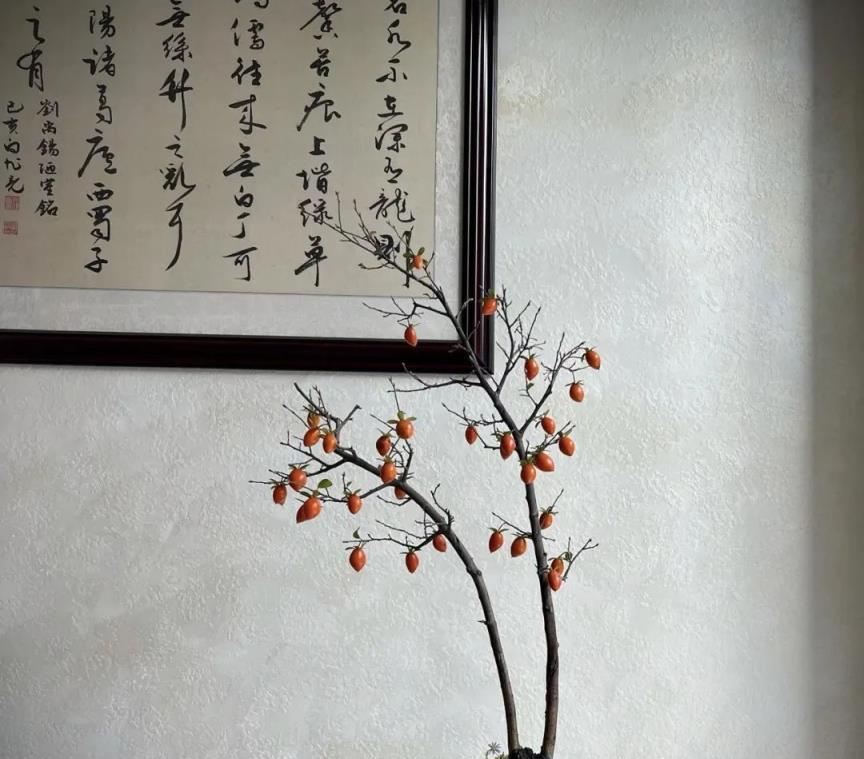 名水不在深有龍則
馨苔痕上階綠草
鴻儒往來無白丁可
無絲竹之亂耳
陽諸葛廬西蜀子
之有
劉禹錫陋室銘
己亥